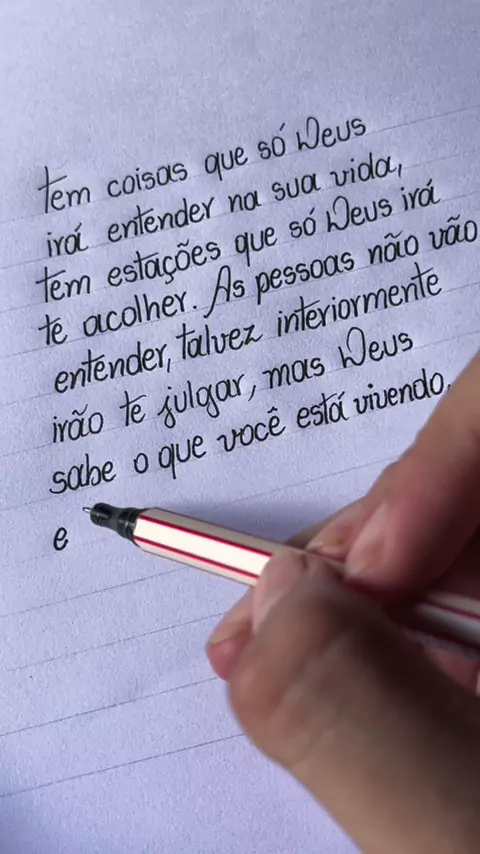 tem coisas que só Deus
irá entender na sua vida,
tem estações que só Deus irá
te acolher. As pessoas não vão
entender, talvez interiormente
irão te julgar, mas Deus
sabe o que você está vivendo,
e